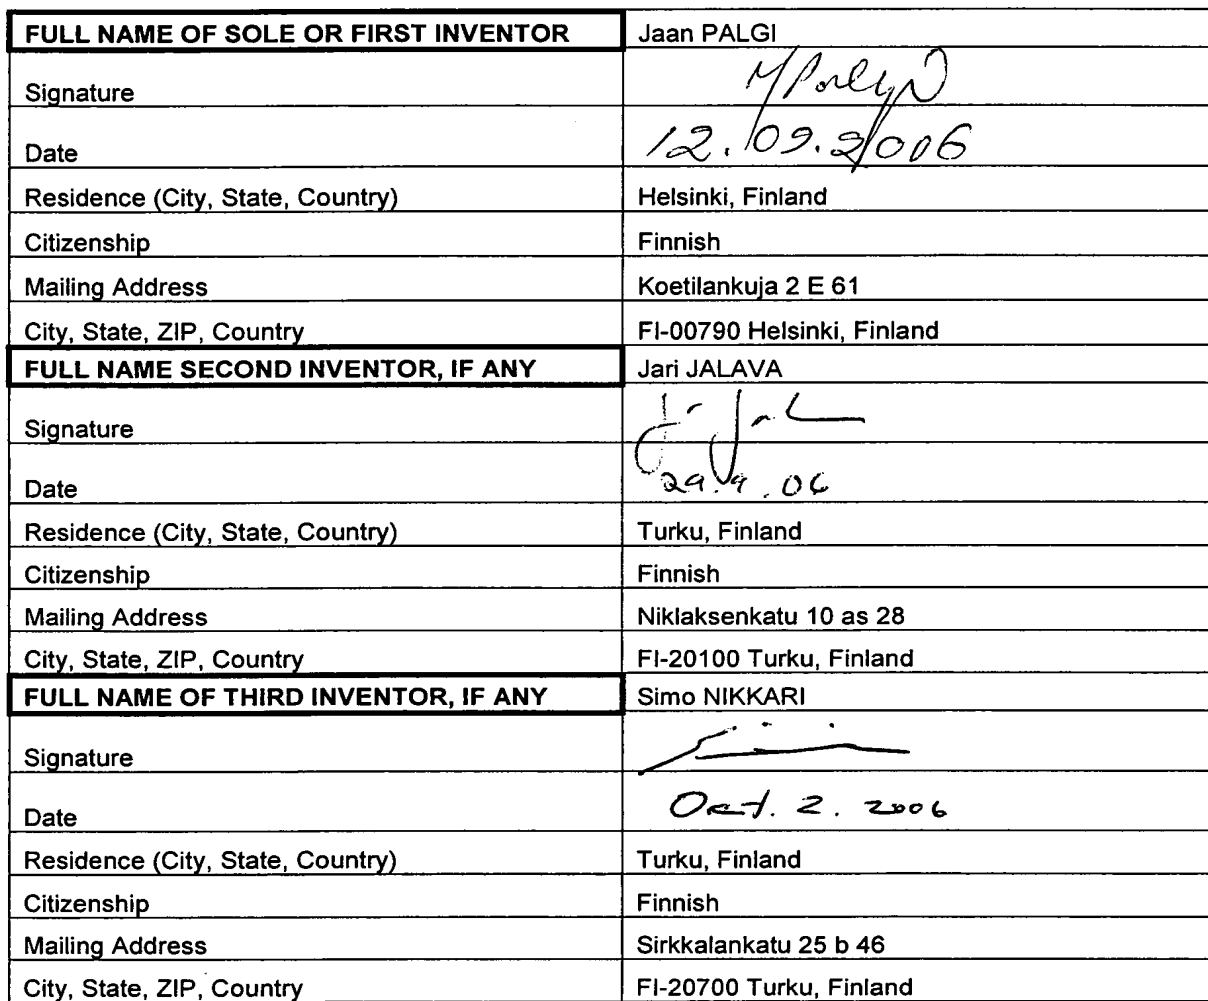 FULL NAME OF SOLE OR FIRST INVENTOR Jaan PALGI
Signature
Date 12.09.2006
Residence (City, State, Country) Helsinki, Finland
Citizenship Finnish
Mailing Address Koetilankuja 2 E 61
City, State, ZIP, Country FI-00790 Helsinki, Finland
FULL NAME SECOND INVENTOR, IF ANY Jari JALAVA
Signature
Date 29.9.06
Residence (City, State, Country) Turku, Finland
Citizenship Finnish
Mailing Address Niklaksenkatu 10 as 28
City, State, ZIP, Country FI-20100 Turku, Finland
FULL NAME OF THIRD INVENTOR, IF ANY Simo NIKKARI
Signature
Date Oct. 2. 2006
Residence (City, State, Country) Turku, Finland
Citizenship Finnish
Mailing Address Sirkkalankatu 25 b 46
City, State, ZIP, Country FI-20700 Turku, Finland